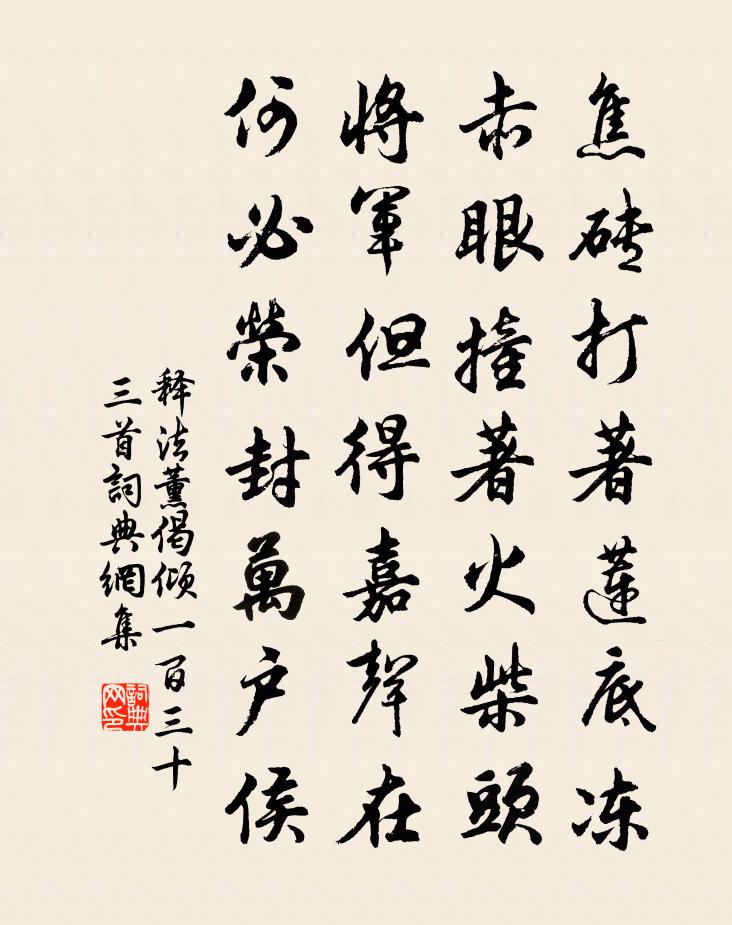 焦磚打著蓮底凍
赤眼撞著火柴頭
將軍但得嘉聲在
何必榮封萬户侯
释法薰偈傾一百三十
三首詞典網集
詞典网印